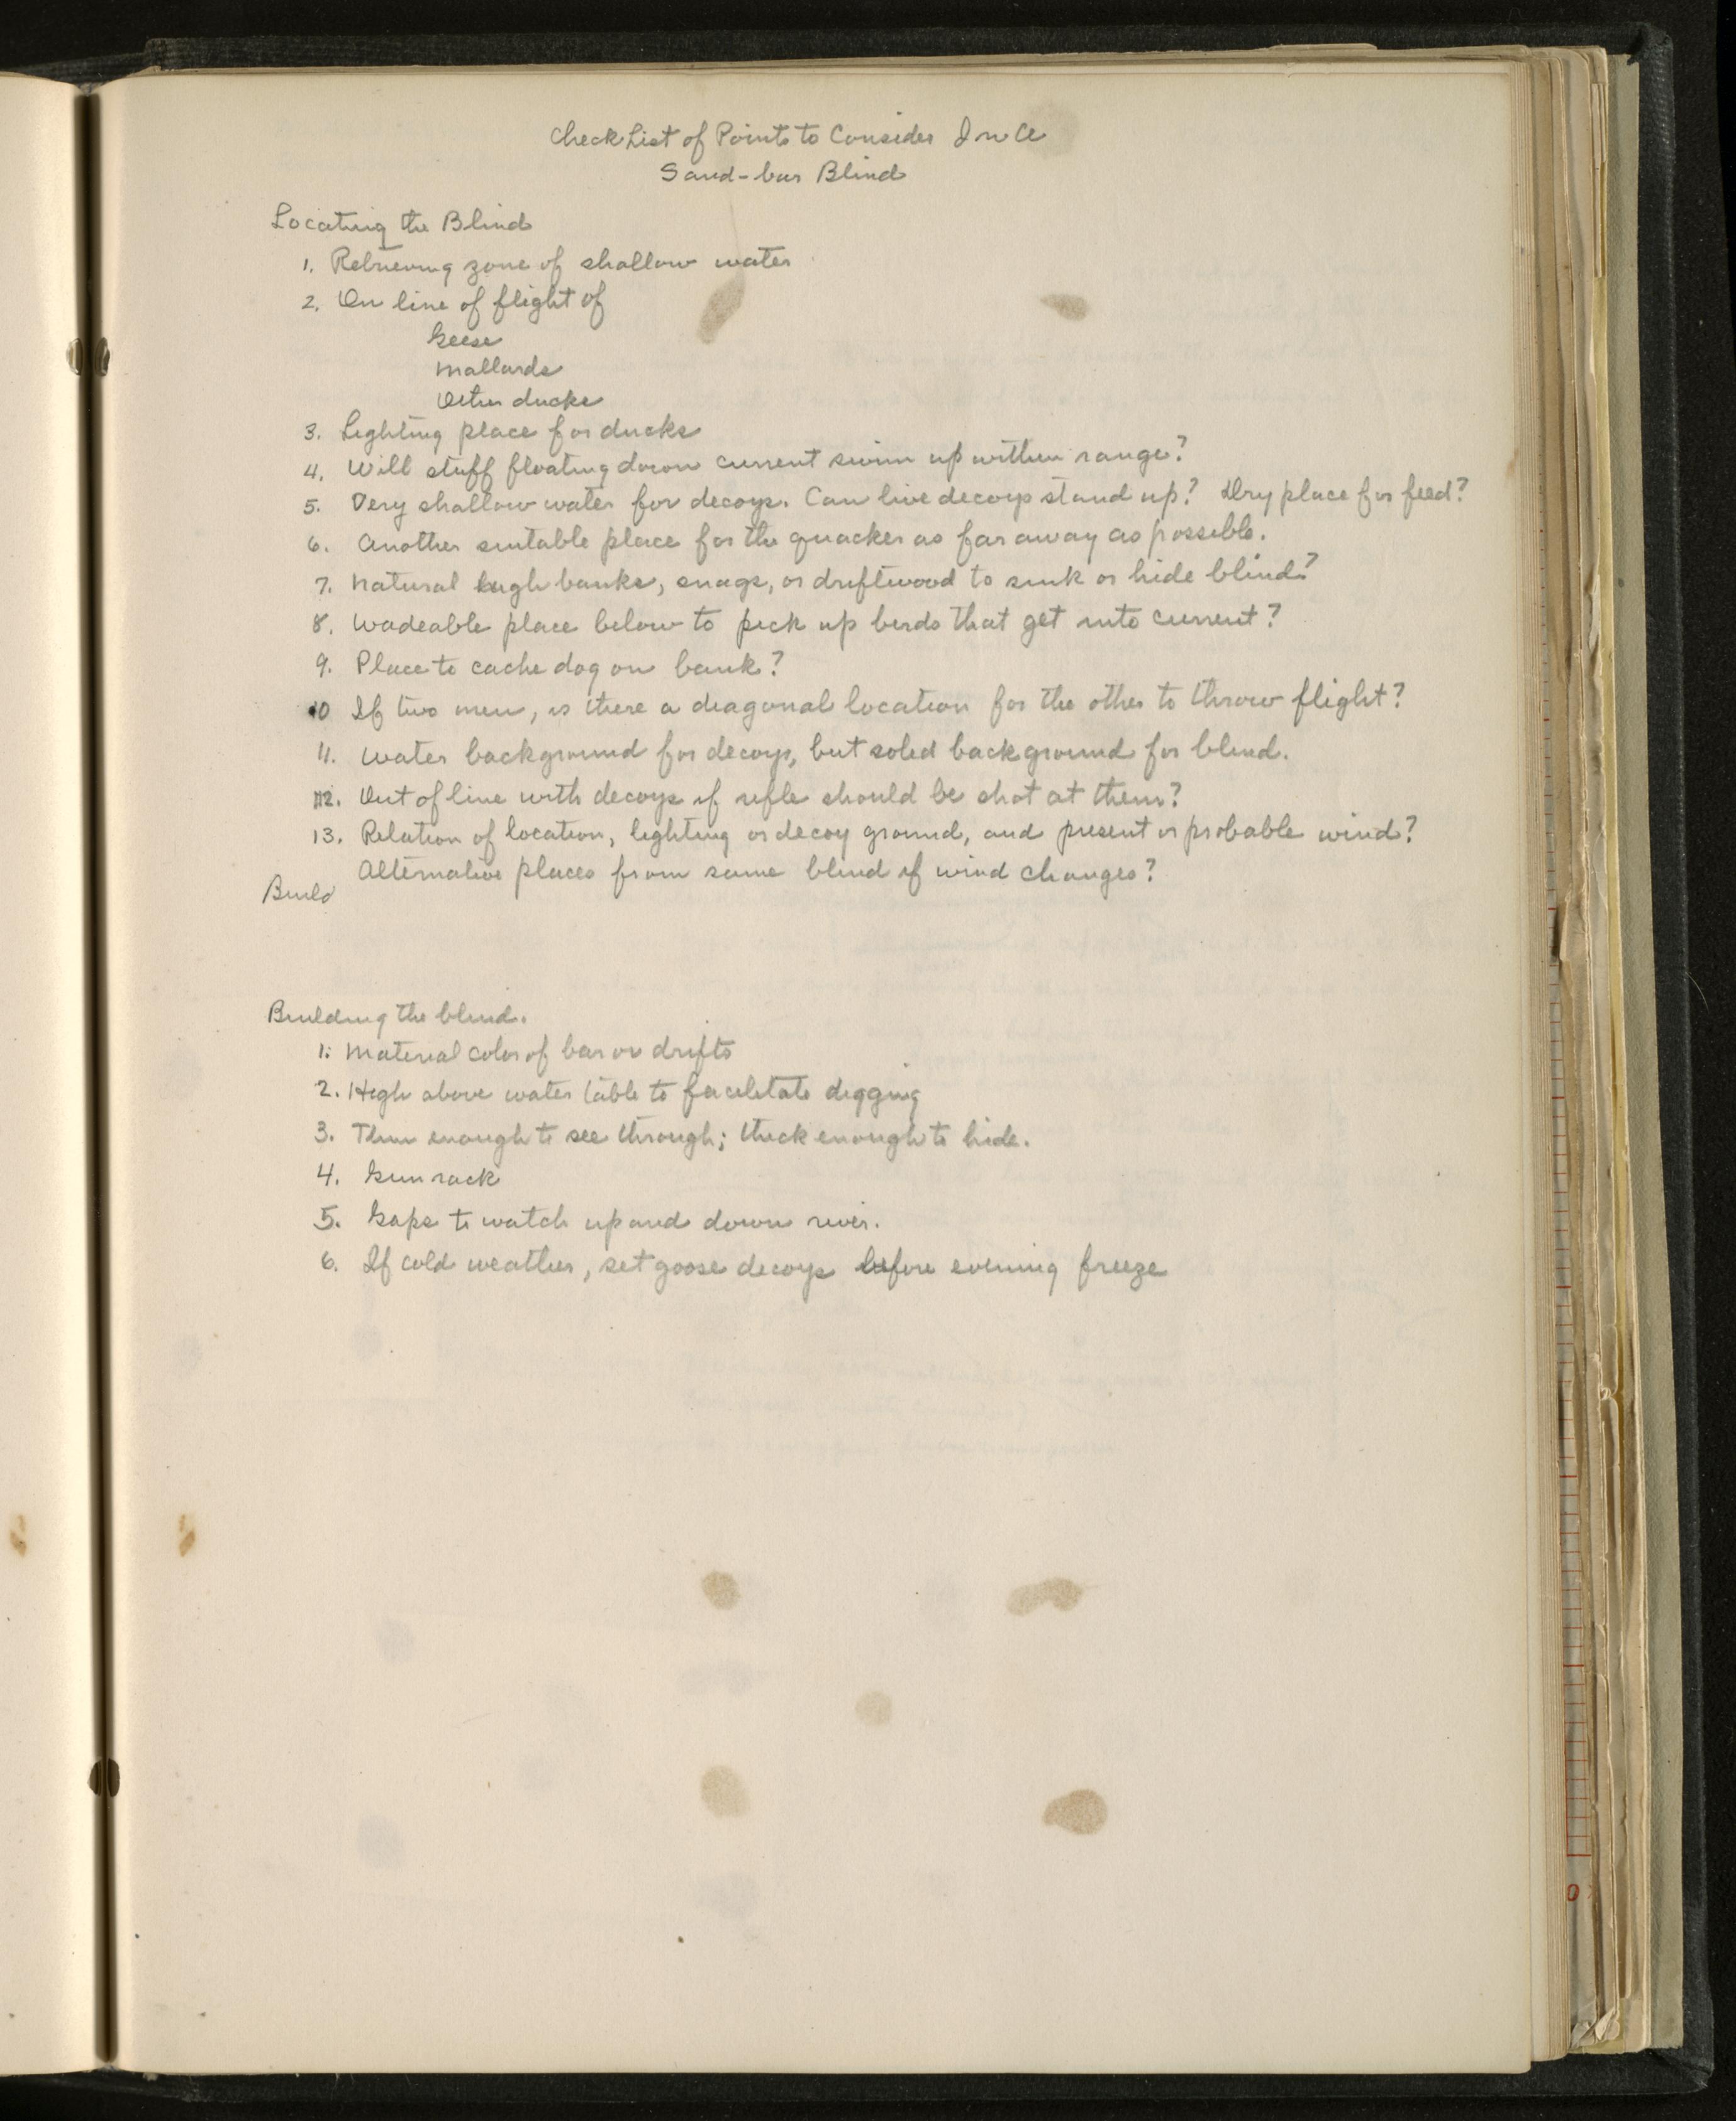 Check List of Points to Consider In A
Sand-bar Blind
Locating the Blind
1. Retrieving zone of shallow water
2. On line of flight of
Geese
Mallards
Other ducks
3. Lighting place for ducks
4. Will stuff floating down current swim up within range?
5. Very shallow water for decoys. Can live decoys stand up? Dry place for feed?
6. Another suitable place for the quacker as far away as possible.
7. Natural high banks, snags, or driftwood to sink or hide blind?
8. Wadeable place below to pick up birds that get into current?
9. Place to cache dog on bank?
10 If two men, is there a diagonal location for the other to throw flight?
11. Water background for decoys, but solid background for blind.
12. Out of line with decoys if rifle should be shot at them?
13. Relation of location, lighting or decoy ground, and present or probable wind?
Alternative places from same blind if wind changes?
Build
Building the blind.
1. Material color of bar or drifts
2. High above water table to facilitate digging
3. Thin enough to see through; thick enough to hide.
4. Gun rack
5. Gaps to watch up and down river.
6. If cold weather, set goose decoys before evening freeze